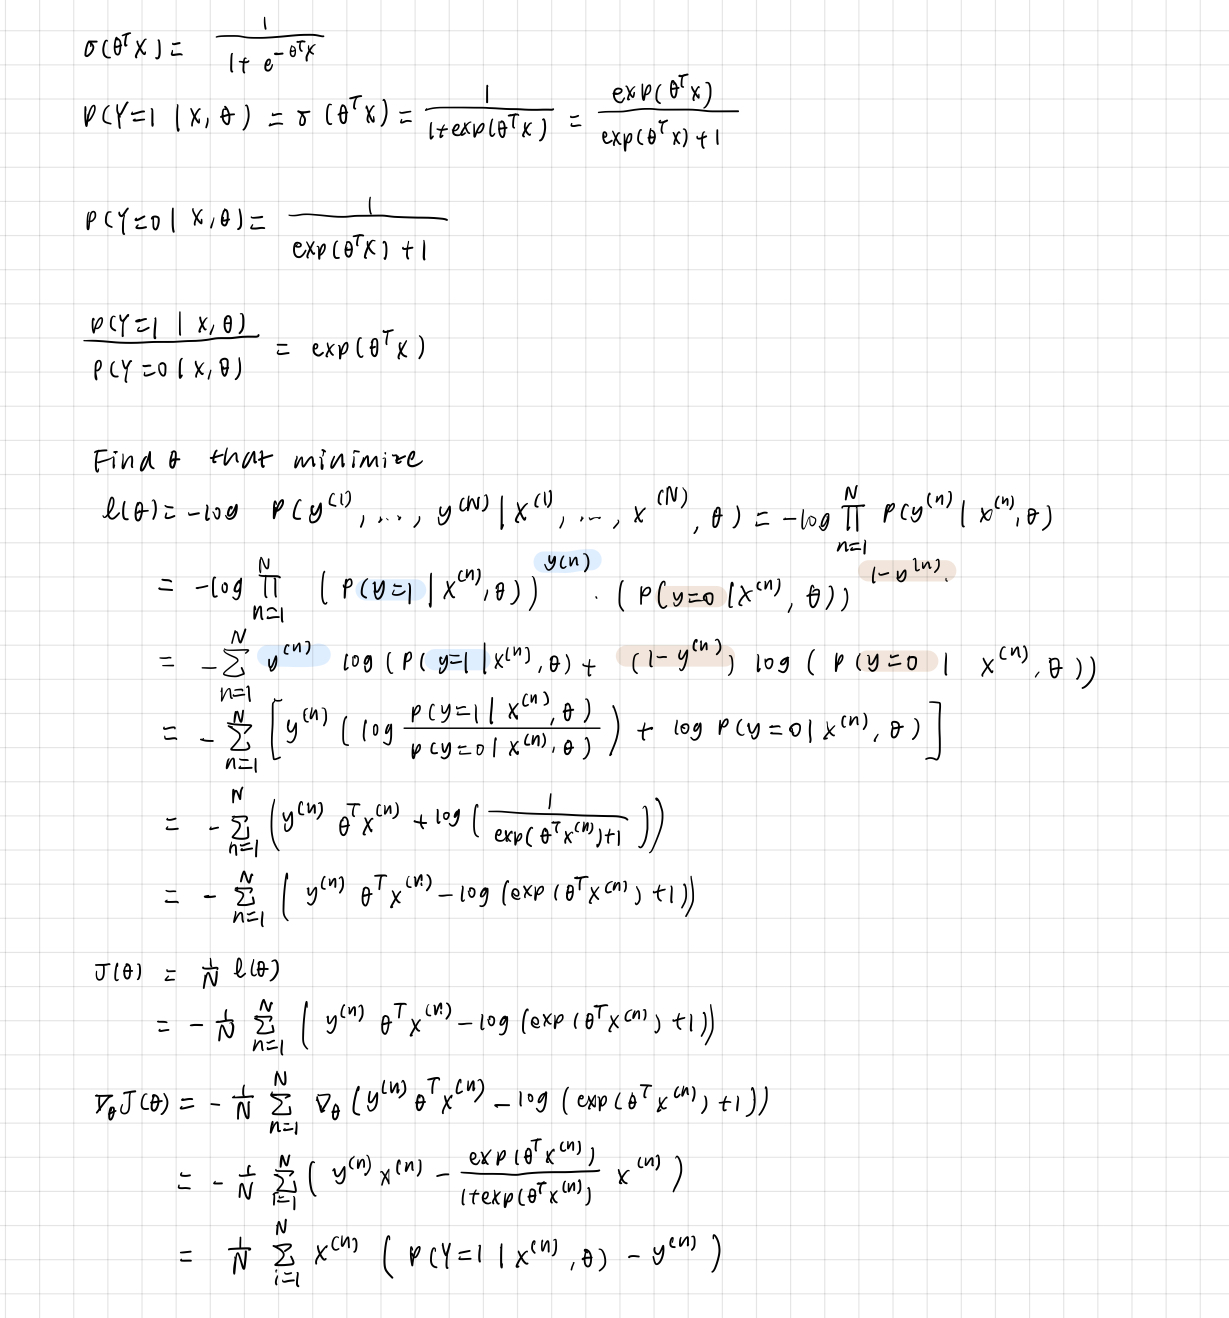 σ(θᵀx) = 1 / (1 + e^(-θᵀx))
p(Y=1 | x, θ) = σ(θᵀx) = 1 / (1+exp(θᵀx)) = exp(θᵀx) / (exp(θᵀx)+1)
p(Y=0 | x, θ) = 1 / (exp(θᵀx)+1)
p(Y=1 | x, θ) / p(Y=0 | x, θ) = exp(θᵀx)
Find θ that minimize
ℓ(θ) = -log p(y^(1), ..., y^(N) | x^(1), ..., x^(N), θ) = -log ∏_{n=1}^{N} p(y^(n) | x^(n), θ)
= -log ∏_{n=1}^{N} (p(y=1 | x^(n), θ))^{y(n)} · (p(y=0 | x^(n), θ))^{1-y^(n)}
= -∑_{n=1}^{N} y^(n) log(p(y=1 | x^(n), θ) + (1-y^(n)) log(p(y=0 | x^(n), θ))
= -∑_{n=1}^{N} [y^(n) (log p(y=1 | x^(n), θ) / p(y=0 | x^(n), θ)) + log p(y=0 | x^(n), θ)]
= -∑_{n=1}^{N} (y^(n) θᵀx^(n) + log(1 / (exp(θᵀx^(n))+1)))
= -∑_{n=1}^{N} (y^(n) θᵀx^(n) - log(exp(θᵀx^(n)) +1))
J(θ) = 1/N ℓ(θ)
= -1/N ∑_{n=1}^{N} (y^(n) θᵀx^(n) - log(exp(θᵀx^(n)) +1))
∇_θ J(θ) = -1/N ∑_{n=1}^{N} ∇_θ (y^(n) θᵀx^(n) - log(exp(θᵀx^(n)) +1))
= -1/N ∑_{i=1}^{N} (y^(n) x^(n) - exp(θᵀx^(n)) / (1+exp(θᵀx^(n))) x^(n))
= 1/N ∑_{i=1}^{N} x^(n) (p(Y=1 | x^(n), θ) - y^(n))